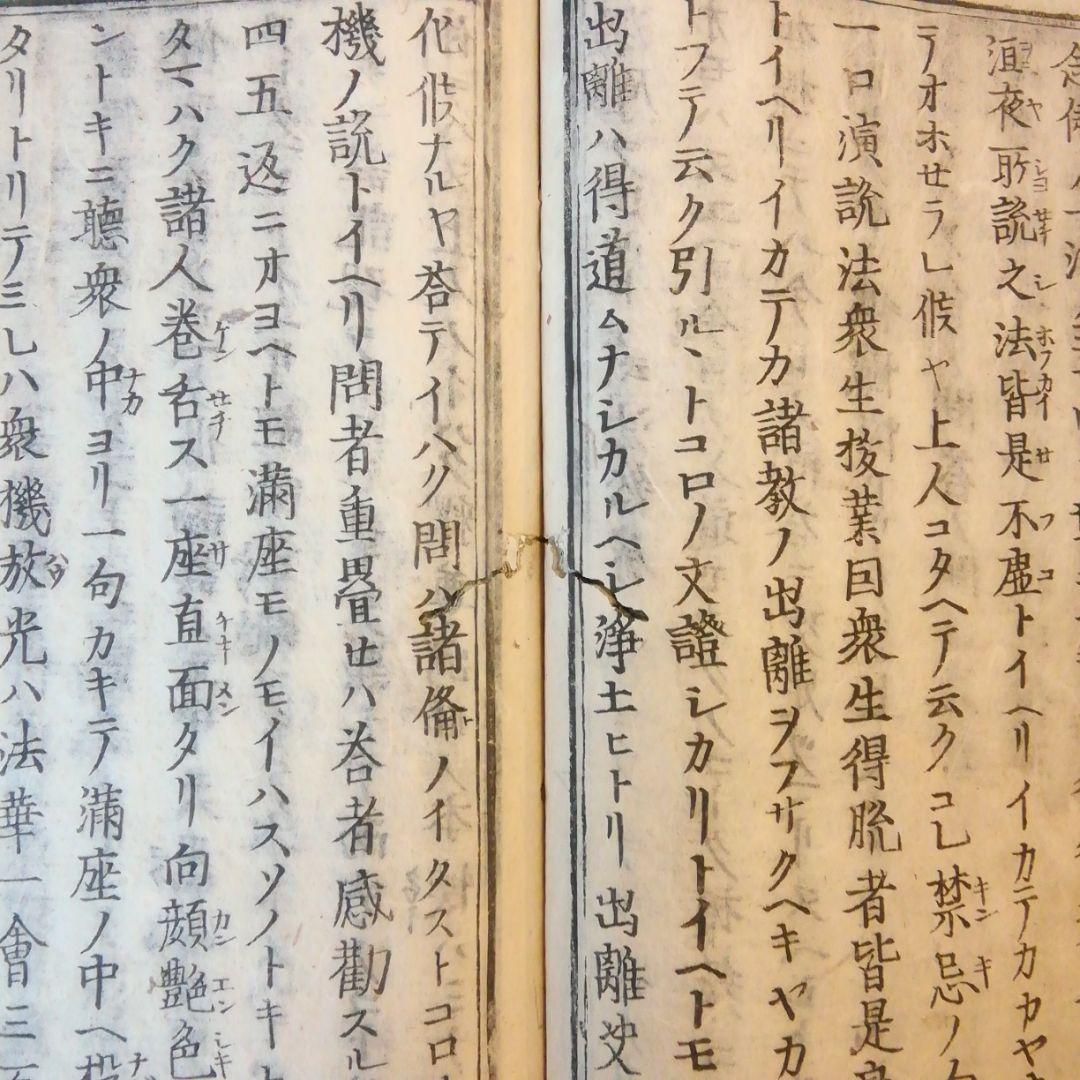 涯夜所説之法皆是不虚トイヘリイカテカカヤ
テオホセラレ候ヤ上人コタヘテ云クコレ禁忌ノ
一口演説法衆生投業因衆生得脱者皆是
トイヘリイカテカ諸教ノ出離ヲフサクヘキヤカ
トフテ云ク引ル丶トコロノ文證シカリトイヘトモ
出離ハ得道ムナシカルヘシ浄土ヒトリ出離
化候ナルヤ荅テイハク問ハ諸倫ノイタストコロ
機ノ説トイヘリ問者重畳セハ荅者感勸スル
四五返ニオヨヘトモ滿座モノモイハスソノトキ
タマハク諸人巻舌ス一座直面タリ向顔艶色
ントキニ聴衆ノ中ヨリ一句カキテ滿座ノ中ヘ
タリトリテミレハ衆機放光ハ法華一會三